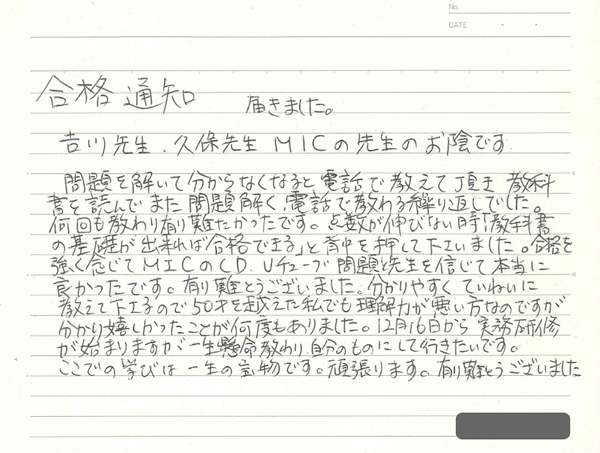 No.
DATE
合格通知 届きました。
吉川先生、久保先生 MICの先生のお陰です
問題を解いて分からなくなると、電話で教えて頂き 教科
書を読んで また 問題解く、電話で教わる繰り返しでした。
何回も教わり有り難たかったです。点数が伸びない時「教科書
の基礎が出来れば合格できる」と背中を押して下さいました。合格を
強く念じてMICのCD、Uチューブ 問題と先生を信じて本当に
良かったです。有り難とうございました。分かりやすくていねいに
教えて下さるので50才を越えた私でも理解力が悪い方なのですが
分かり嬉しかったことが何度もありました。12月16日から実務研修
が始まりますが一生懸命教わり、自分のものにして行きたいです。
ここでの学びは一生の宝物です。頑張ります。有り難とうございました